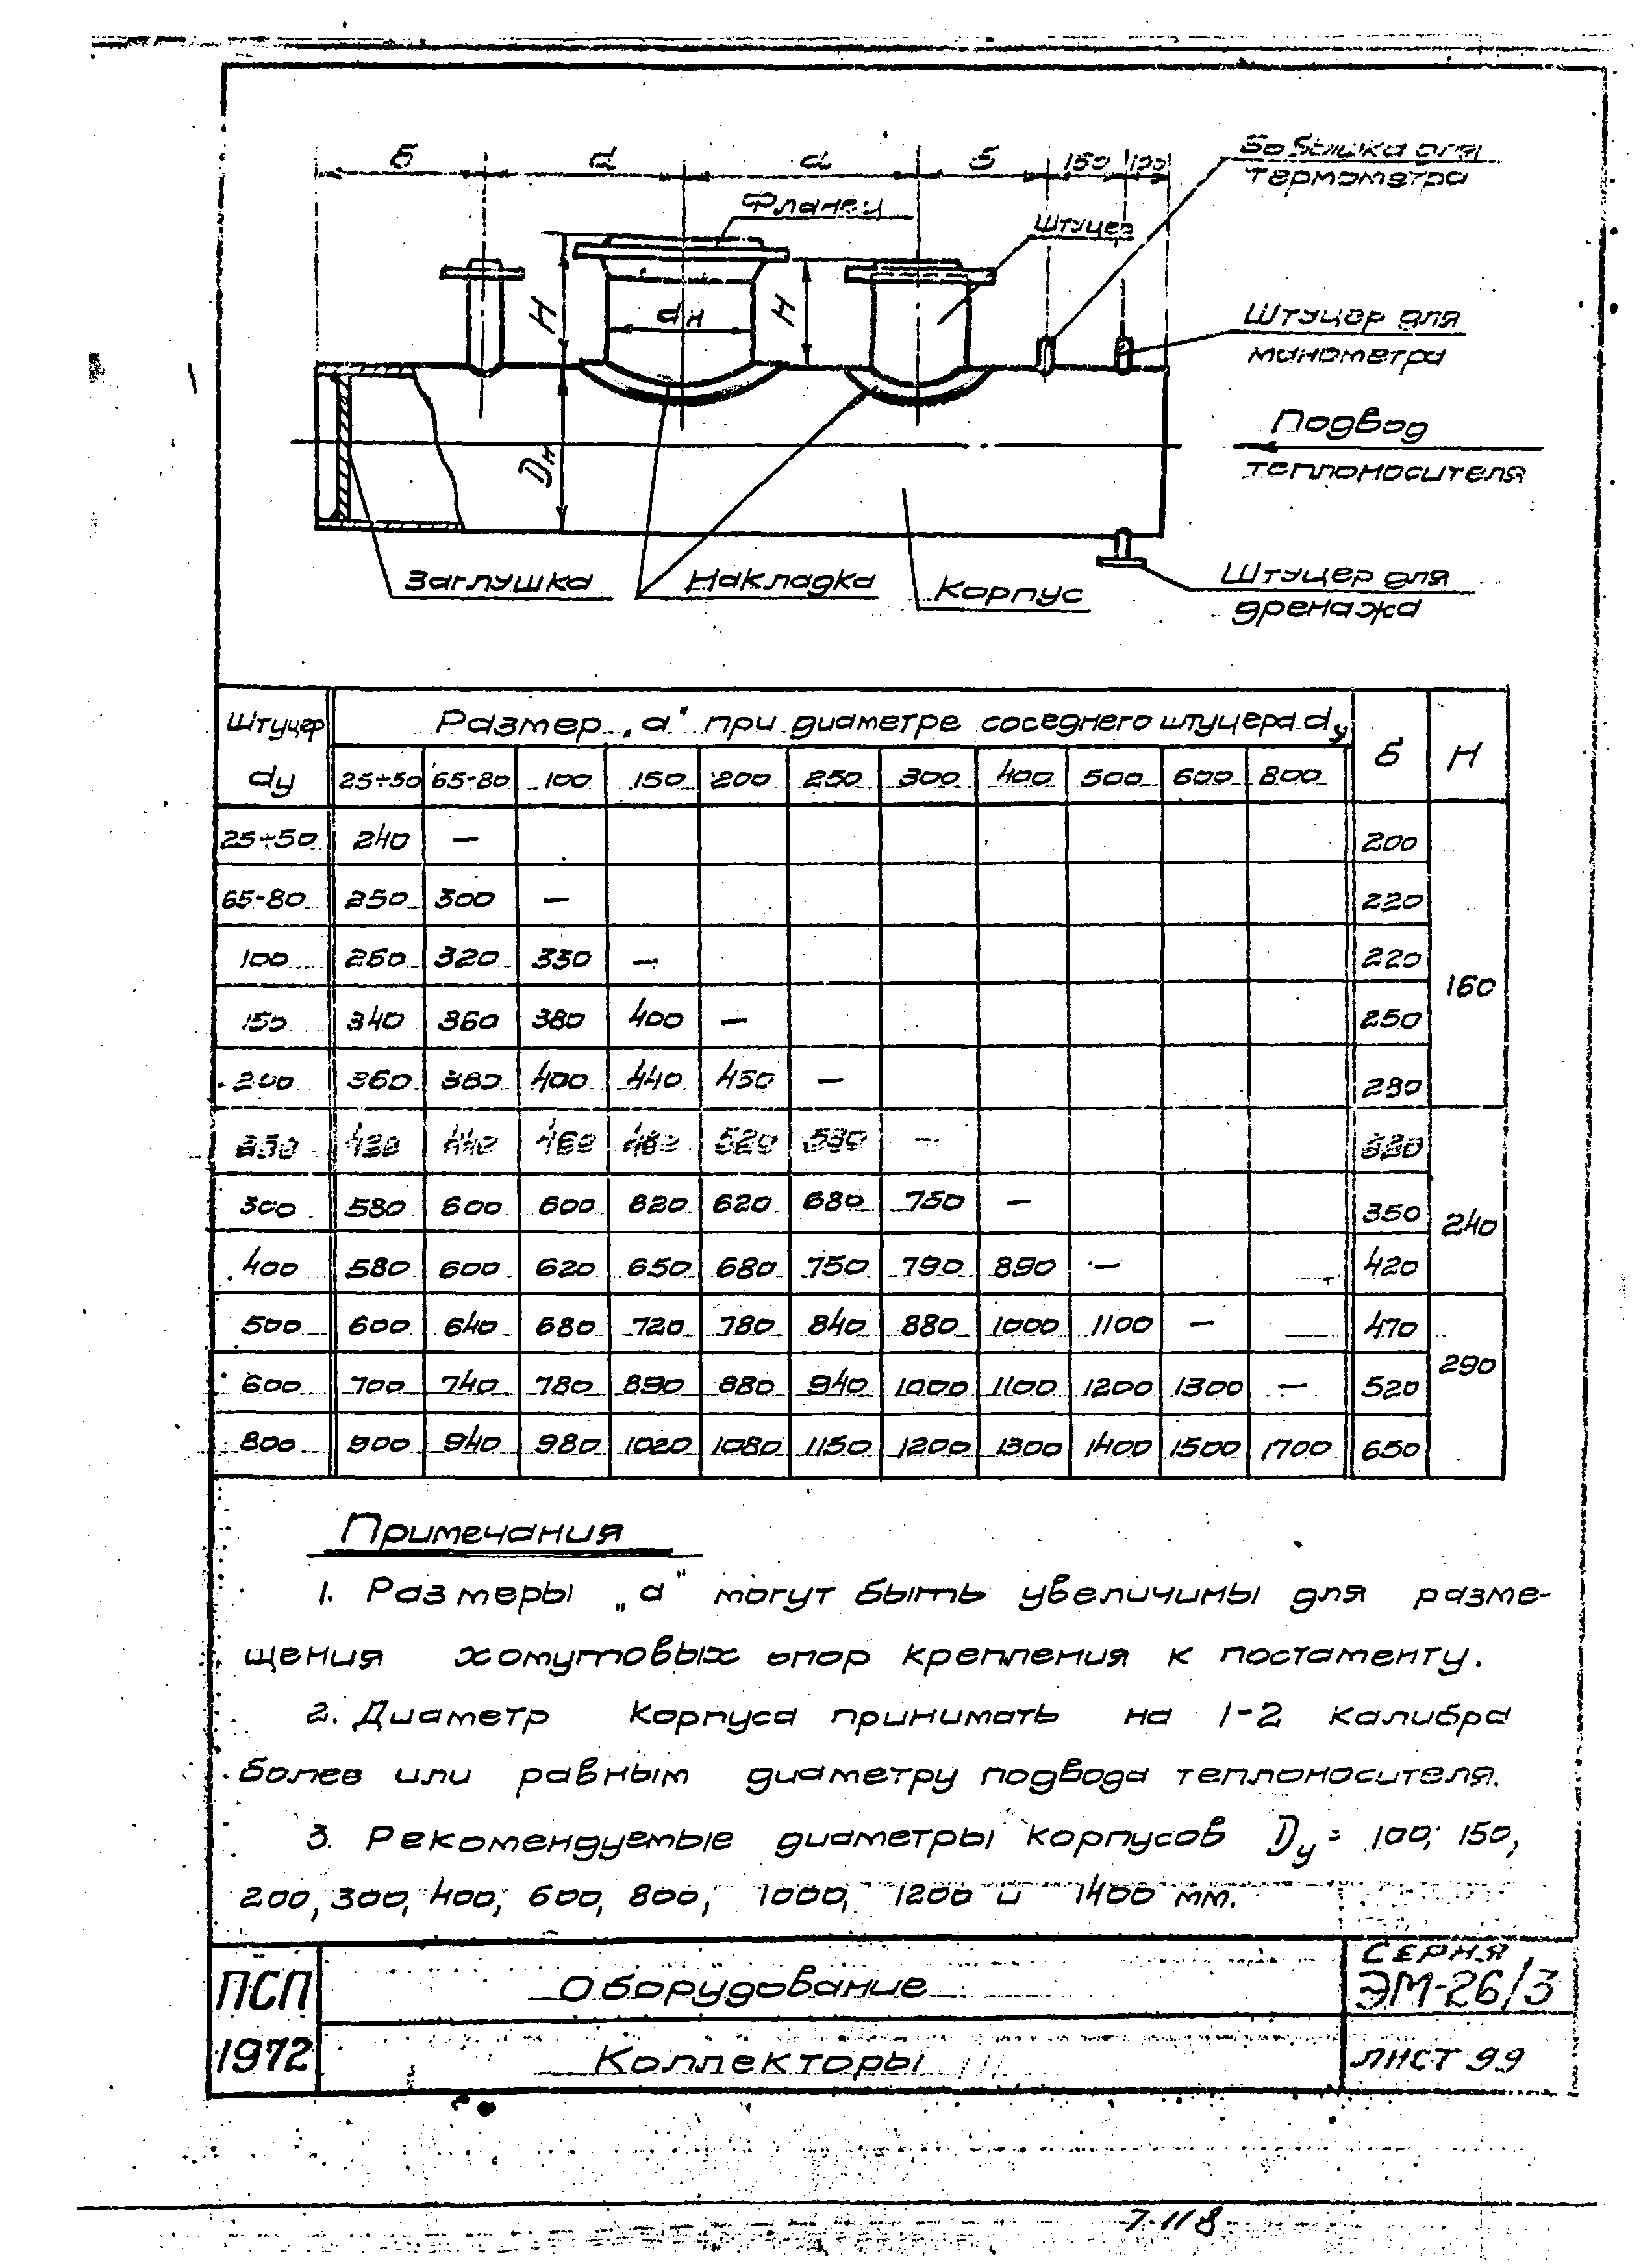 б а а б 160 100
Бобышка для
термометра
Фланец
Штуцер
H
dн
H
Штуцер для
манометра
Подвод
теплоносителя
Dн
Заглушка
Накладка
Корпус
Штуцер для
дренажа
Штуцер dу Размер „а" при диаметре соседнего штуцера dу б H
25÷50 65-80 100 150 200 250 300 400 500 600 800
25÷50 240 — 200
65-80 250 300 — 220
100 260 320 330 — 220
160
150 340 360 380 400 — 250
200 360 380 400 440 450 — 280
250 520 530 — 320
300 580 600 600 620 620 680 750 — 350
240
400 580 600 620 650 680 750 790 890 — 420
500 600 640 680 720 780 840 880 1000 1100 — 470
290
600 700 740 780 890 880 940 1000 1100 1200 1300 — 520
800 900 940 980 1020 1080 1150 1200 1300 1400 1500 1700 650
Примечания
1. Размеры „а" могут быть увеличины для разме-
щения хомутовых опор крепления к постаменту.
2. Диаметр корпуса принимать на 1-2 калибра
более или равным диаметру подвода теплоносителя.
3. Рекомендуемые диаметры корпусов Dу = 100; 150,
200, 300, 400, 600, 800, 1000, 1200 и 1400 мм.
ПСП
1972
Оборудование
Коллекторы
СЕРИЯ
ЭМ-26/3
ЛИСТ 99
7-118